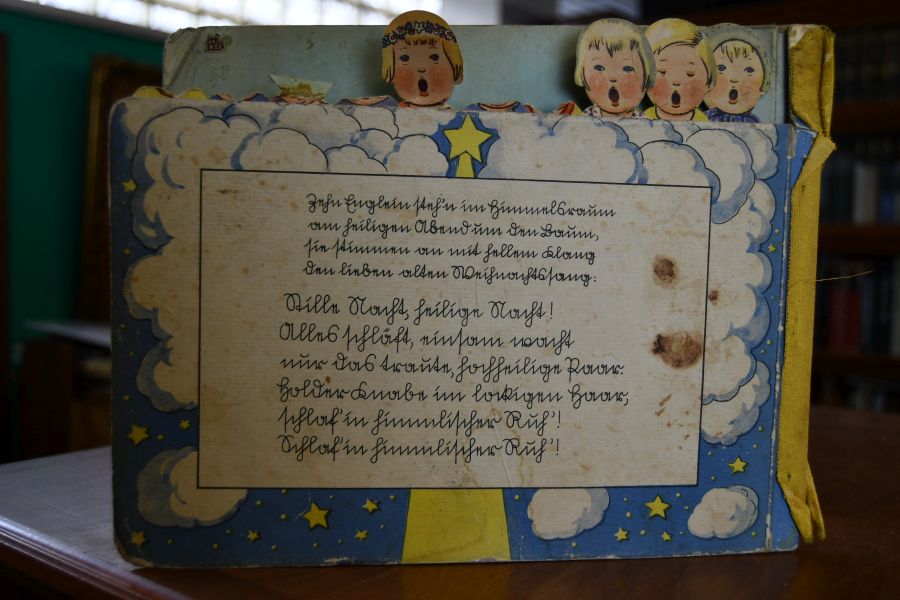 Zehn Englein steh'n im Himmelsraum
am heiligen Abend um den Baum,
sie stimmen an mit hellem Klang
den lieben alten Weihnachtssang:
Stille Nacht, heilige Nacht!
Alles schläft, einsam wacht
nur das traute, hochheilige Paar.
Holder Knabe im lockigen Haar,
schlaf' in himmlischer Ruh'!
Schlaf' in himmlischer Ruh'!